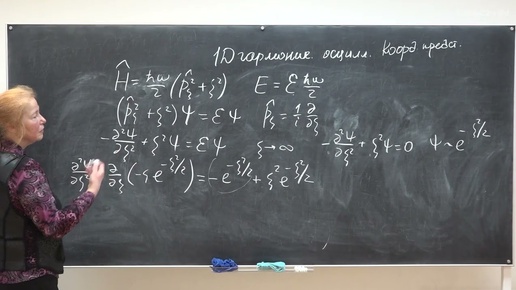 1D гармонич. осцилл. Коорд. предст.
Ĥ = ħω/2 (p̂_ξ² + ξ̂²)   E = ℰ ħω/2
(p̂_ξ² + ξ²) Ψ = ℰ Ψ   p̂_ξ = 1/i ∂/∂ξ
-∂²Ψ/∂ξ² + ξ²Ψ = ℰΨ   ξ → ∞   -∂²Ψ/∂ξ² + ξ²Ψ = 0   Ψ ~ e^{-ξ²/2}
∂²Ψ/∂ξ² = ∂/∂ξ (-ξ e^{-ξ²/2}) = -e^{-ξ²/2} + ξ² e^{-ξ²/2}